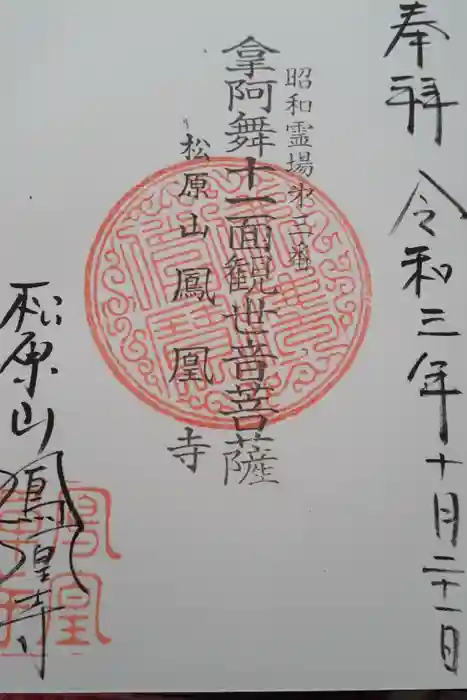 奉拜 令和三年十月二十一日
昭和霊場第三番
拿阿舞十一面観世音菩薩
松原山 鳳凰寺
松原山 鳳凰寺
鳳凰